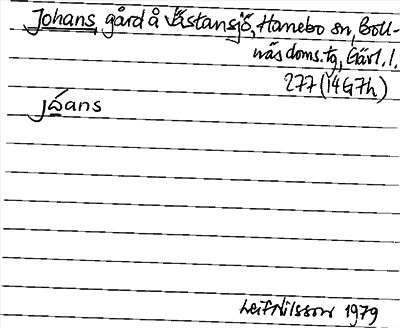 Johans, gård å Västansjö, Hanebo sn, Boll-
näs doms.tg, Gävl. l.
277 (14G7h)
jòans
Leif Nilsson 1979